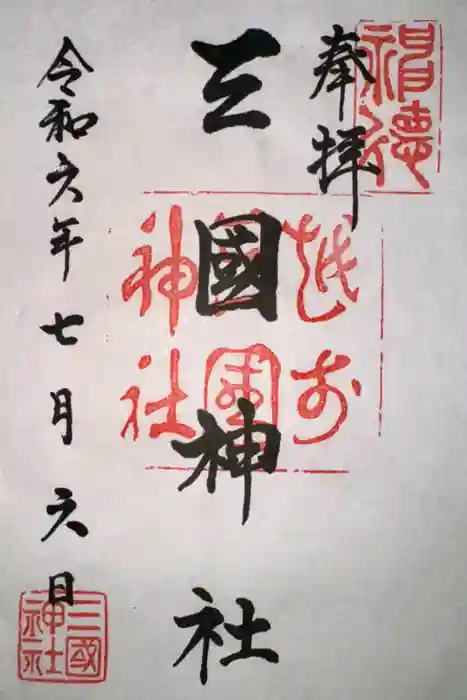 奉拝
三國神社
令和六年七月六日
越前
三國
神社
三國
神社